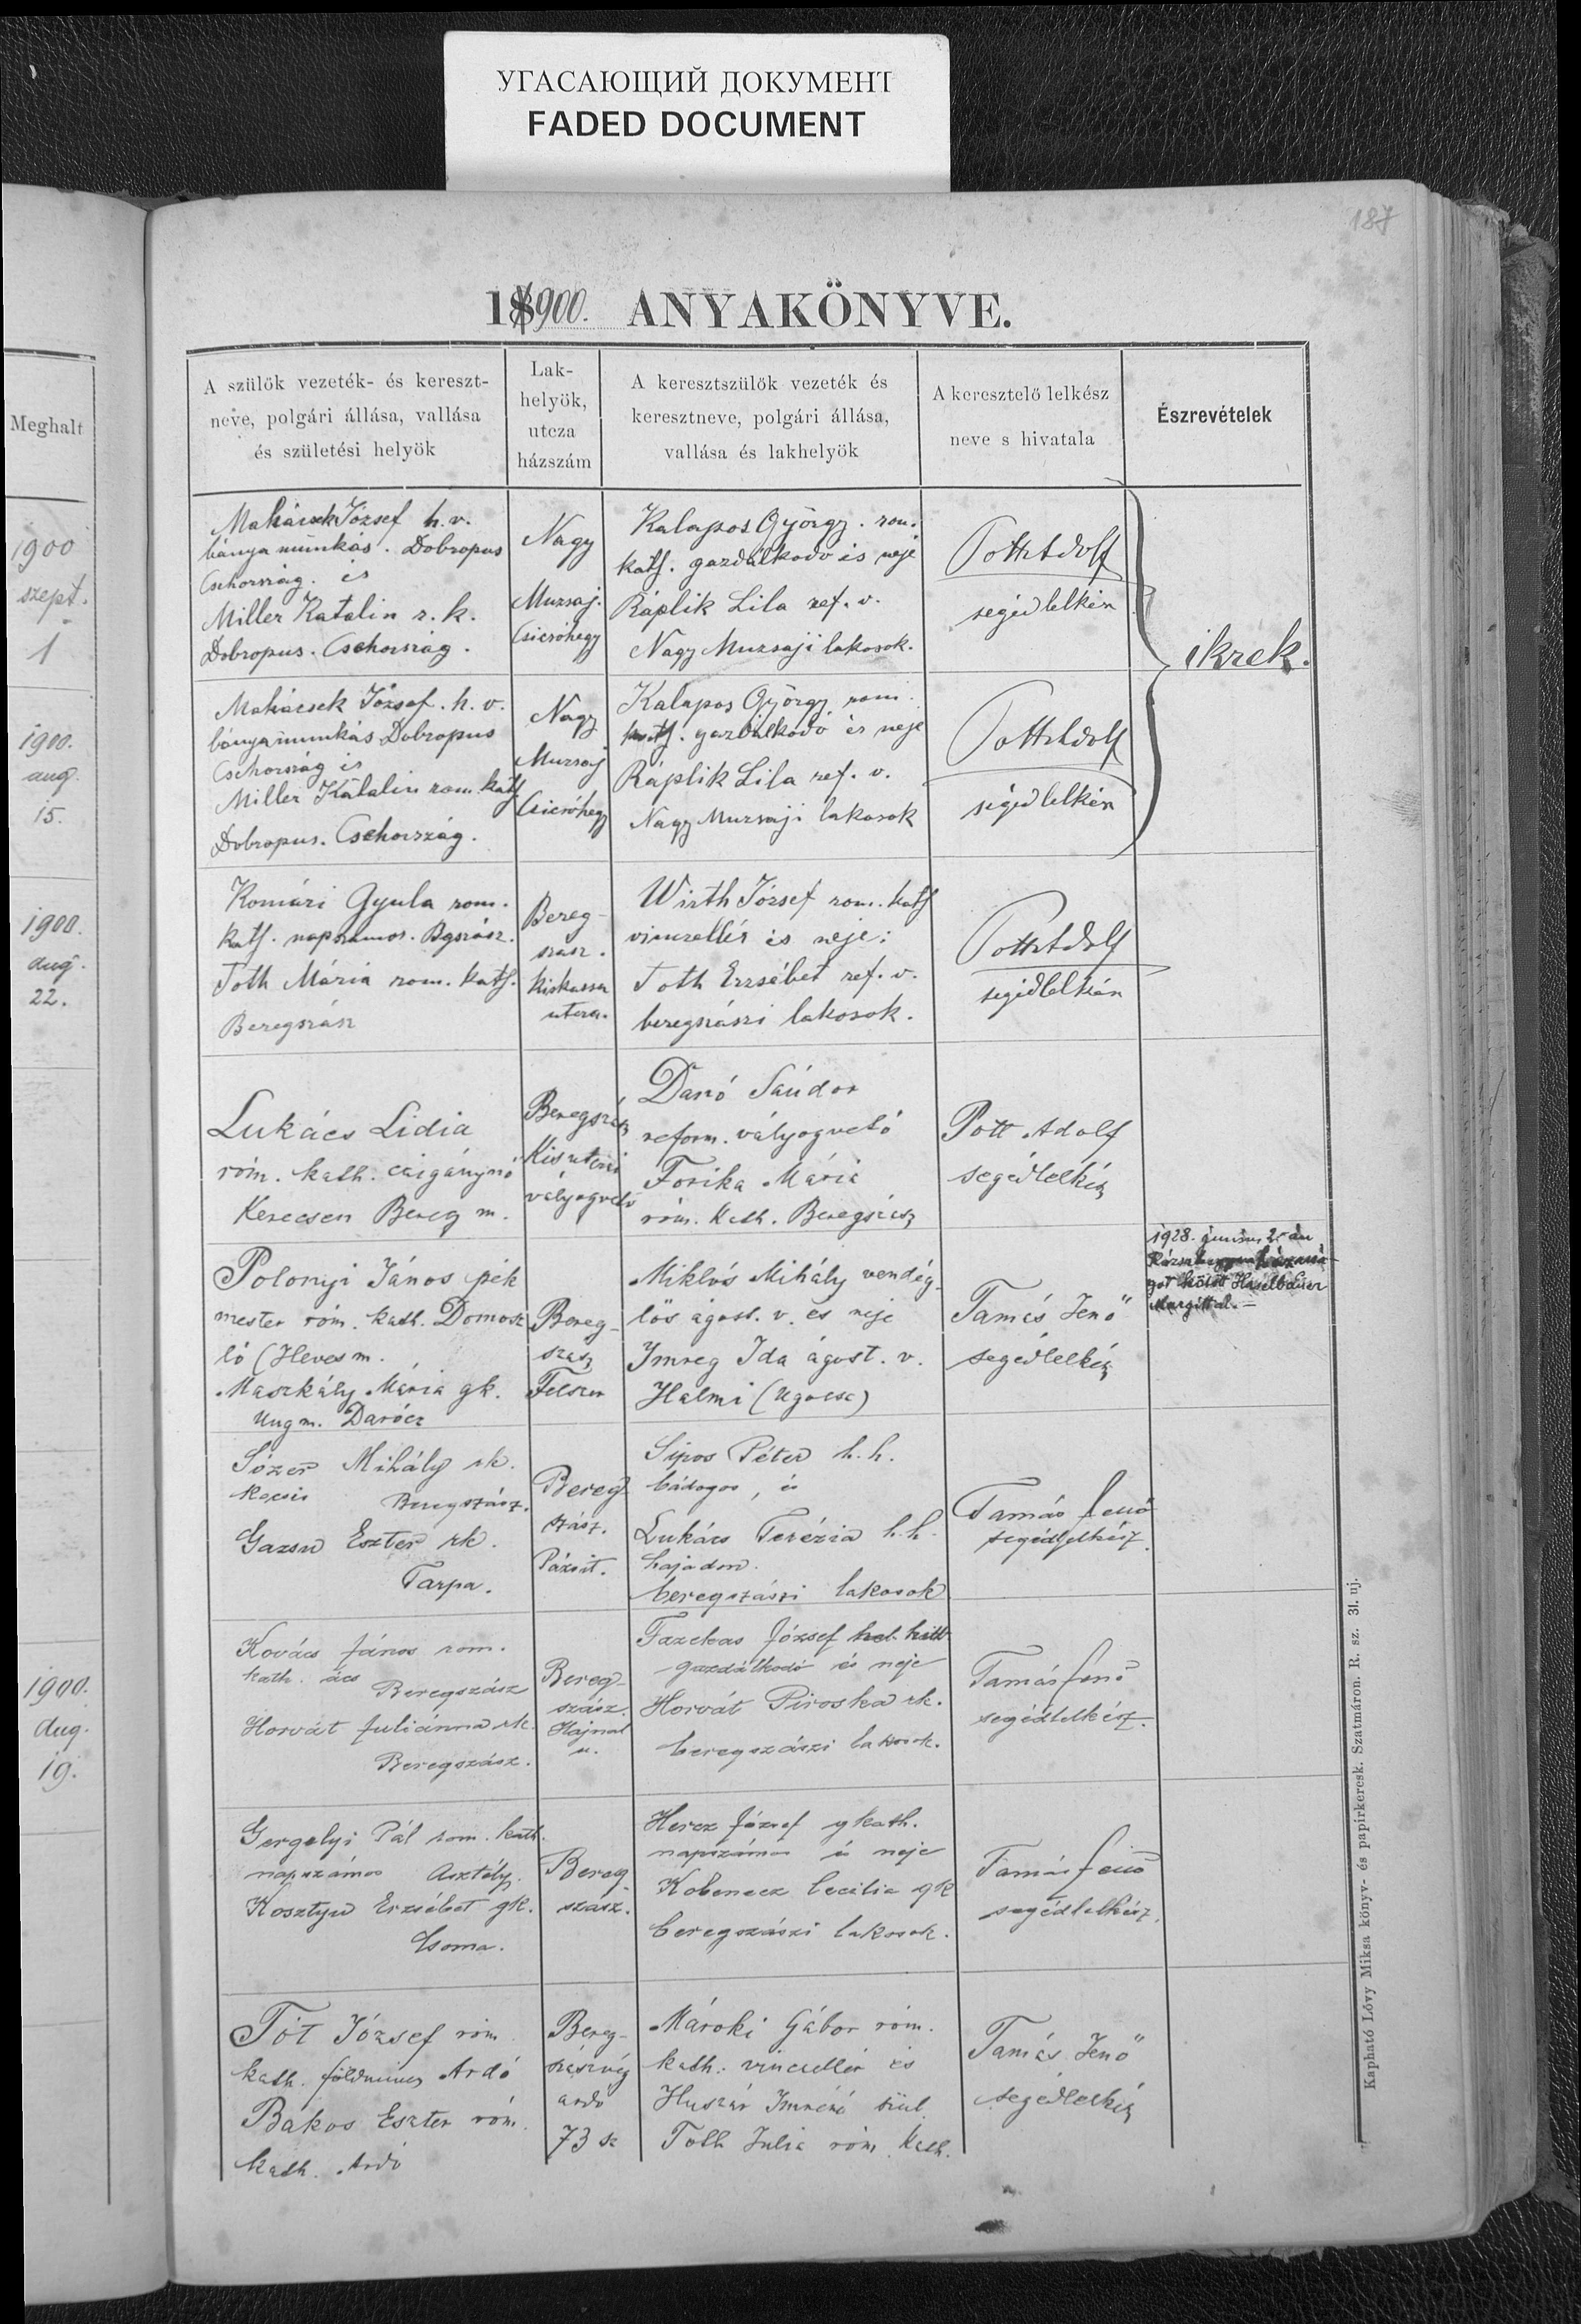 УГАСАЮЩИЙ ДОКУМЕНТ
FADED DOCUMENT
187
1900. ANYAKÖNYVE.
Meghalt
1900
szept.
1
1900.
aug.
15.
1900.
aug.
22.
1900.
Aug.
19.
A szülök vezeték- és kereszt-
neve, polgári állása, vallása
és születési helyök
Lak-
helyök,
utcza
házszám
A keresztszülök vezeték és
keresztneve, polgári állása,
vallása és lakhelyök
A keresztelő lelkész
neve s hivatala
Észrevételek
Mahácsek József h. v.
bánya munkás. Dobropus
Csehország. és
Miller Katalin r. k.
Dobropus. Csehország.
Nagy
Muzsaj.
Csicsóhegy
Kalapos György. rom.
kath. gazdálkodó és neje
Ráplik Lila ref. v.
Nagy Muzsaji lakosok.
Pott Adolf
segédlelkész
ikrek.
Mahácsek József. h. v.
bányamunkás Dobropus
Csehország és
Miller Katalin rom. kath
Dobropus. Csehország.
Nagy
Muzsaj
Csicsóhegy
Kalapos György rom.
kath. gazdálkodó és neje
Ráplik Lila ref. v.
Nagy Muzsaji lakosok
Pott Adolf
segédlelkész
Komári Gyula rom.
kath. napszámos. Bgszász.
Toth Mária rom. kath.
Beregszász
Bereg-
szász.
Kiskassa
utcza.
Wirth József rom. kath
vinczellér és neje:
Toth Erzsébet ref. v.
beregszászi lakosok.
Pott Adolf
segédlelkész
Lukács Lidia
róm. kath. czigánynő
Kerecsen Bereg m.
Beregszász
Kisutczai
vályogvető
Danó Sándor
reform. vályogvető
Forika Mária
róm. kath. Beregszász
Pott Adolf
segédlelkész
Polonyi János pék
mester róm. kath. Domosz
ló (Heves m.
Maszkály Mária gk.
Ung m. Darócz
Bereg-
szász
Felszer
Miklós Mihály vendég-
lős ágost. v. és neje
Imreg Ida ágost. v.
Halmi (Ugocsa)
Tamás Jenő
segédlelkész
1928. junius 2-án
házassá-
got kötött Haselbauer
Margittal. –
Sózer Mihály rk.
kocsis Beregszász.
Gazsu Eszter rk.
Tarpa.
Bereg
szász.
Pázsit.
Sipos Péter h. h.
bádogos, és
Lukács Terézia h. h.
hajadon.
beregszászi lakosok
Tamás Jenő
segédlelkész.
Kovács János rom.
kath. ács Beregszász
Horvát Juliánna rk.
Beregszász.
Bereg-
szász.
Hajnal
u.
Fazekas József hel. hitv.
gazdálkodó és neje
Horvát Piroska rk.
beregszászi lakosok.
Tamás Jenő
segédlelkész.
Gergelyi Pál rom. kath.
napszámos Asztély.
Kosztyu Erzsébet gk.
Csoma.
Bereg
szász.
Hercz József g kath.
napszámos és neje
Kobenecz Cecilia gk
beregszászi lakosok.
Tamás Jenő
segédlelkész.
Tót József róm
kath. földmives Ardó
Bakos Eszter róm.
kath. Ardó
Bereg-
szászvég
ardó
73 sz
Mároki Gábor róm.
kath. vinczellér és
Huszár Imréné szül.
Toth Julia róm. kath.
Tamás Jenő
segédlelkész
Kapható Lővy Miksa könyv- és papirkeresk. Szatmáron. R. sz. 31. uj.